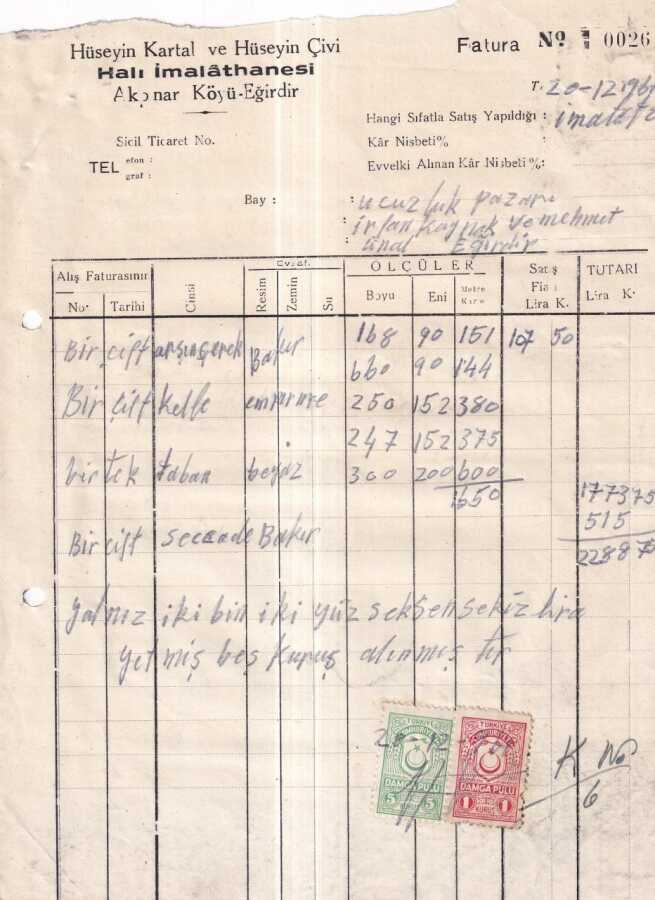 Hüseyin Kartal ve Hüseyin Çivi
Halı İmalâthanesi
Akpınar Köyü-Eğirdir
Fatura No 0026
Sicil Ticaret No.
TEL efon :
graf :
T. 20-12-196
Hangi Sıfatla Satış Yapıldığı : imalat
Kâr Nisbeti %
Evvelki Alınan Kâr Nisbeti %:
Bay : ucuzluk pazarı
: irfan Kaynak ve mehmut
: ünal Eğirdir
Alış Faturasının
No. Tarihi
Cinsi
Evsafı
Resim Zemin Su
ÖLÇÜLER
Boyu Eni Metre Kare
Satış Fia Lira K.
TUTARI Lira K.
Bir çift Bakır 168 90 151 107 50
660 90 144
Bir çift Kelle 250 152 380
247 152 375
bir tek taban beyaz 300 200 600
1650 177375
515
Bir çift seccade Bakır 228875
yalnız iki bin iki yüz seksen sekiz lira
yetmiş beş Kuruş alınmış tır
20-12-
TÜRKİYE CUMHURİYETİ
DAMGA PULU
5 5
TÜRKİYE CUMHURİYETİ
DAMGA PULU
1 1
K No
6